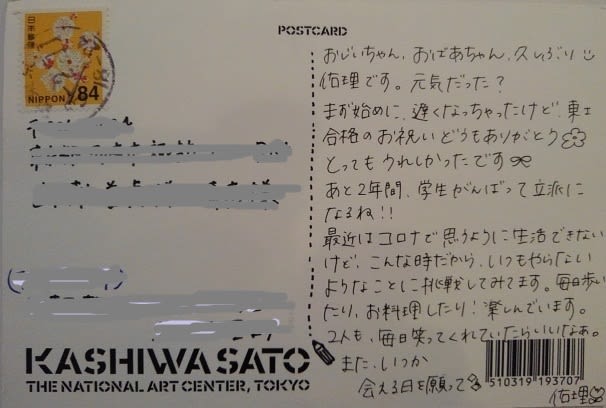 POSTCARD
日本郵便
NIPPON 84
おじいちゃん、おばあちゃん、久しぶり
佑理です。元気だった?
まず始めに、遅くなっちゃったけど、東工
合格のお祝いどうもありがとう
とってもうれしかったです
あと2年間、学生がんばって立派に
なるね!!
最近はコロナで思うように生活できない
けど、こんな時だから、いつもやらない
ようなことに挑戦してみてます。毎日歩い
たり、お料理したり!楽しんでいます。
2人も、毎日笑ってくれていたらいいなぁ。
また、いつか
会える日を願って
佑理
KASHIWA SATO
THE NATIONAL ART CENTER, TOKYO
510319 193707